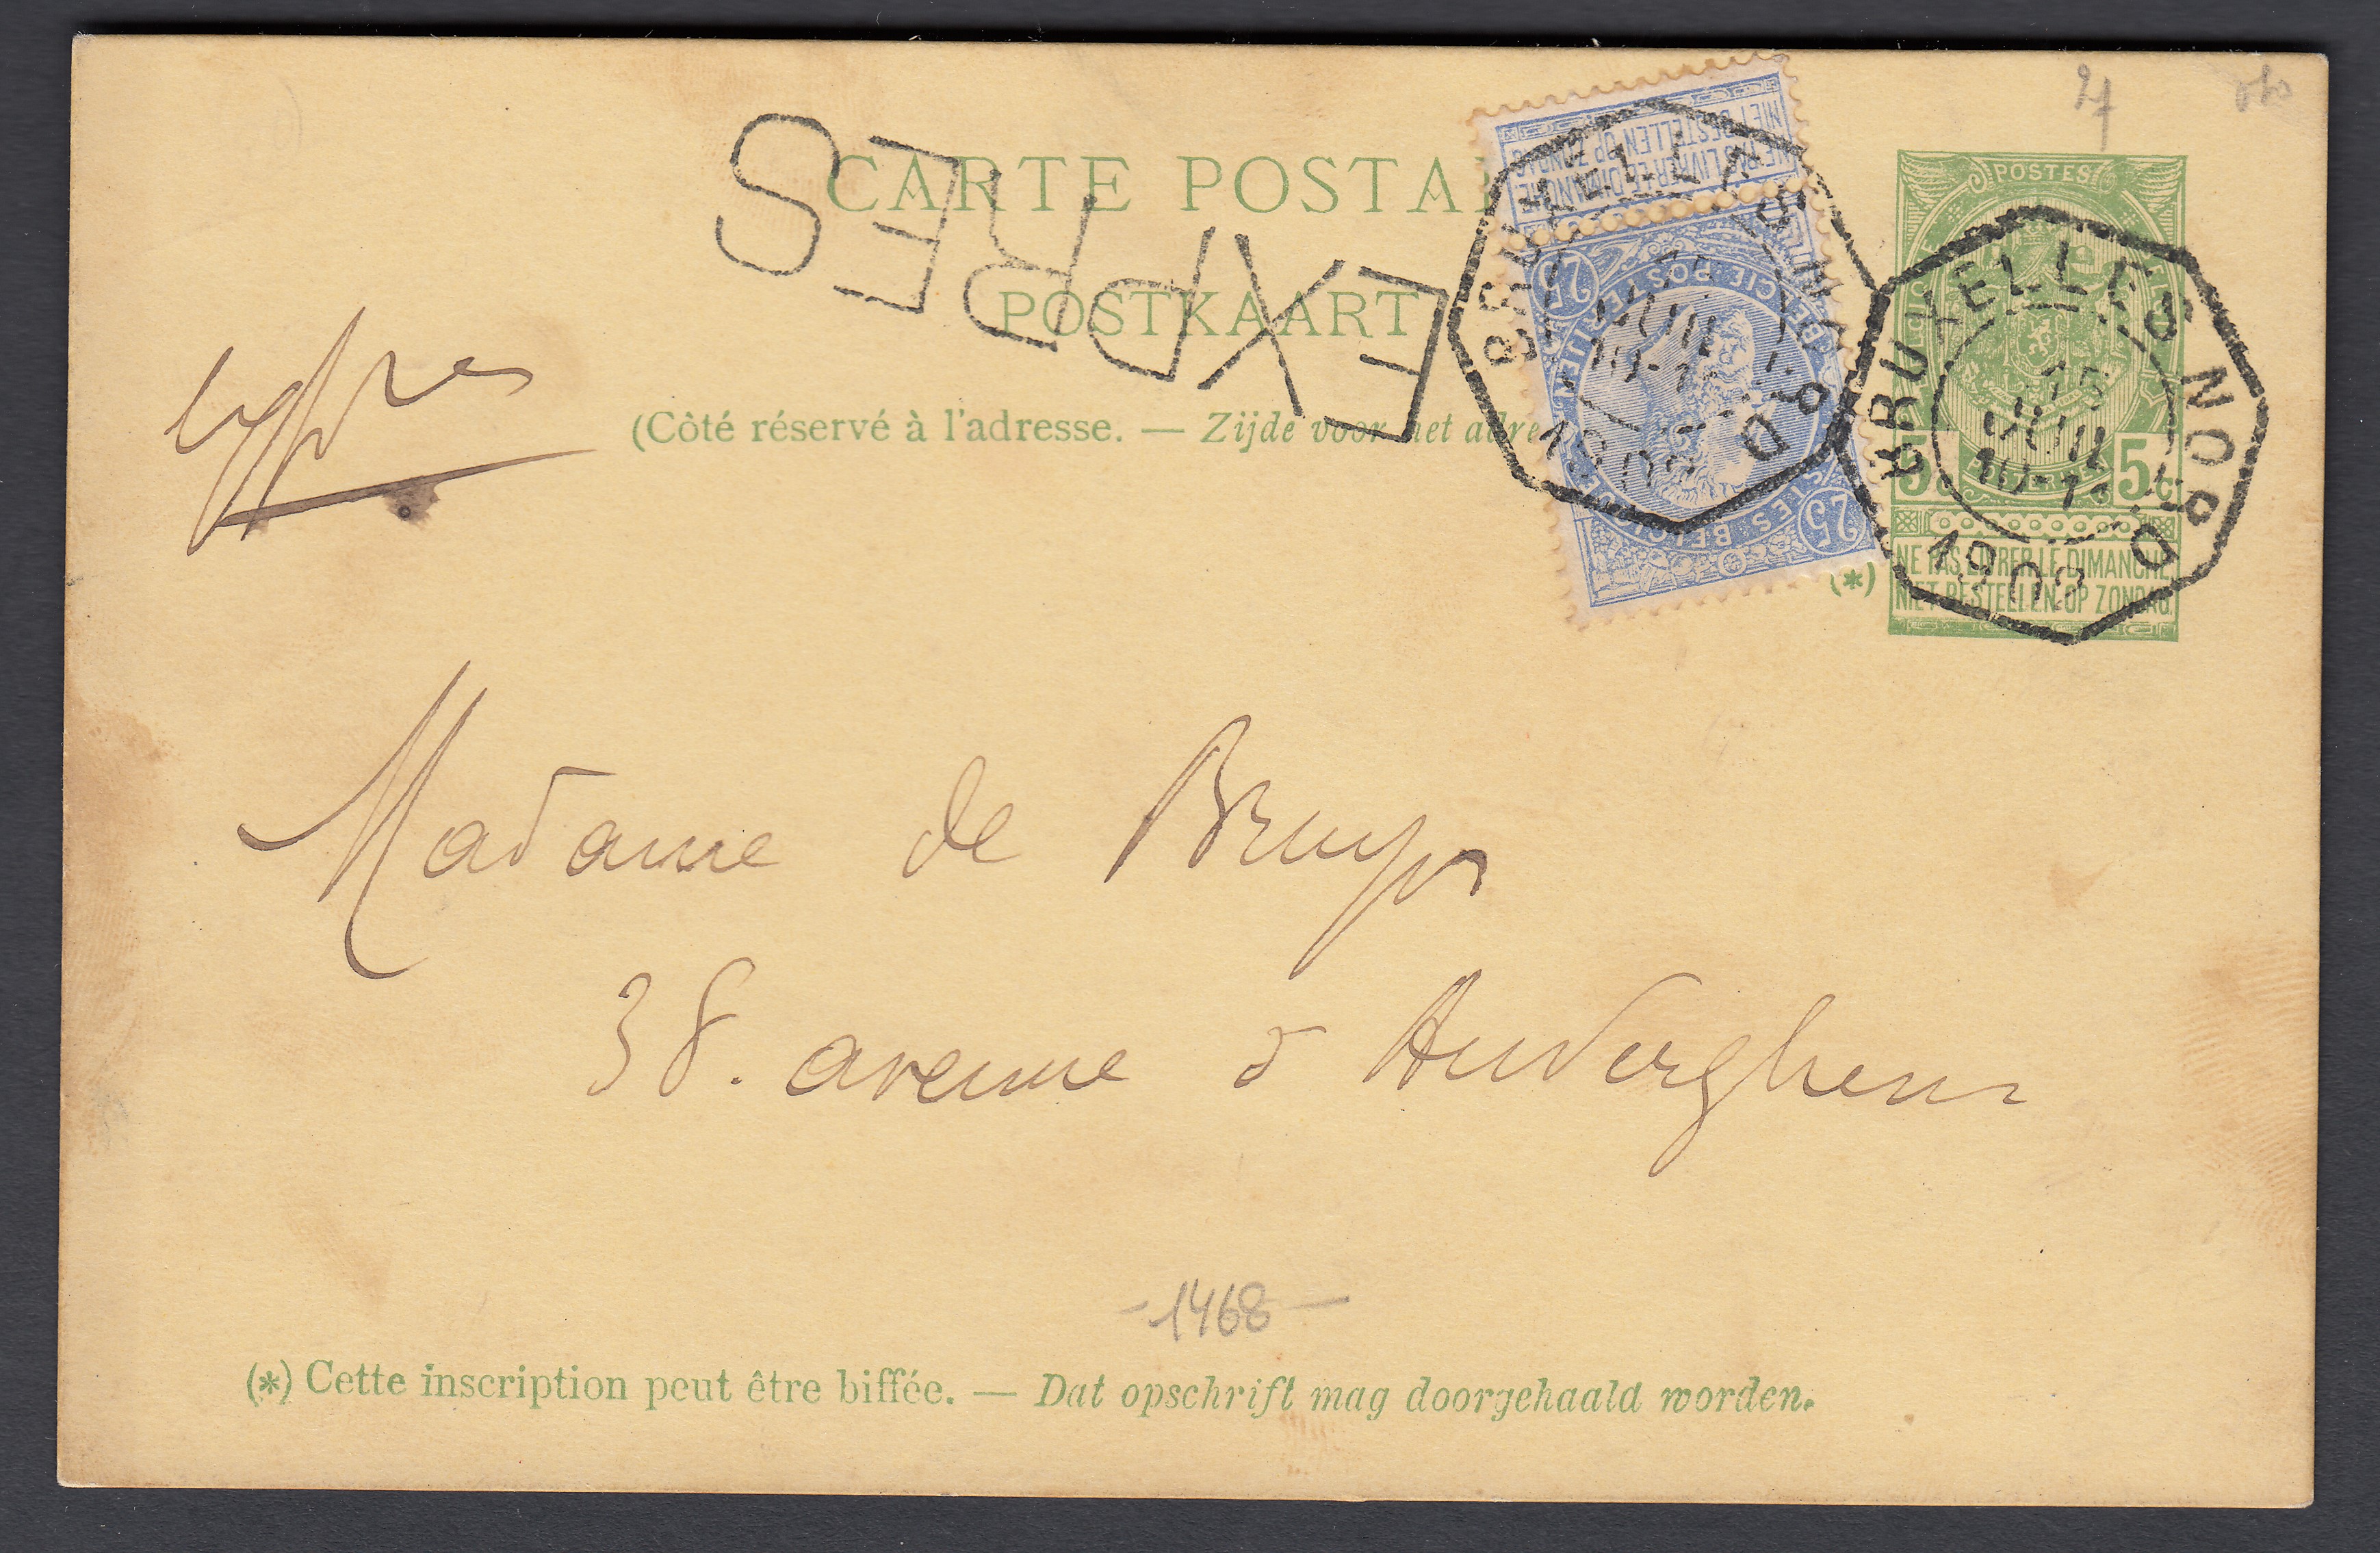 CARTE POSTA
POSTKAART
(Côté réservé à l'adresse. — Zijde voor het adre
EXPRES
expres
NE PAS LIVRER LE DIMANCHE
NIET BESTELLEN OP ZONDAG
25 25
25
BRUXELLES NORD
15
JUIL
10-11
1902
POSTES
5c 5c
NE PAS LIVRER LE DIMANCHE
NIET BESTELLEN OP ZONDAG.
BRUXELLES NORD
15
JUIL
10-11
1902
(*)
Madame de Bruyn
38. avenue d'Auderghem
-1468-
(*) Cette inscription peut être biffée. — Dat opschrift mag doorgehaald worden.